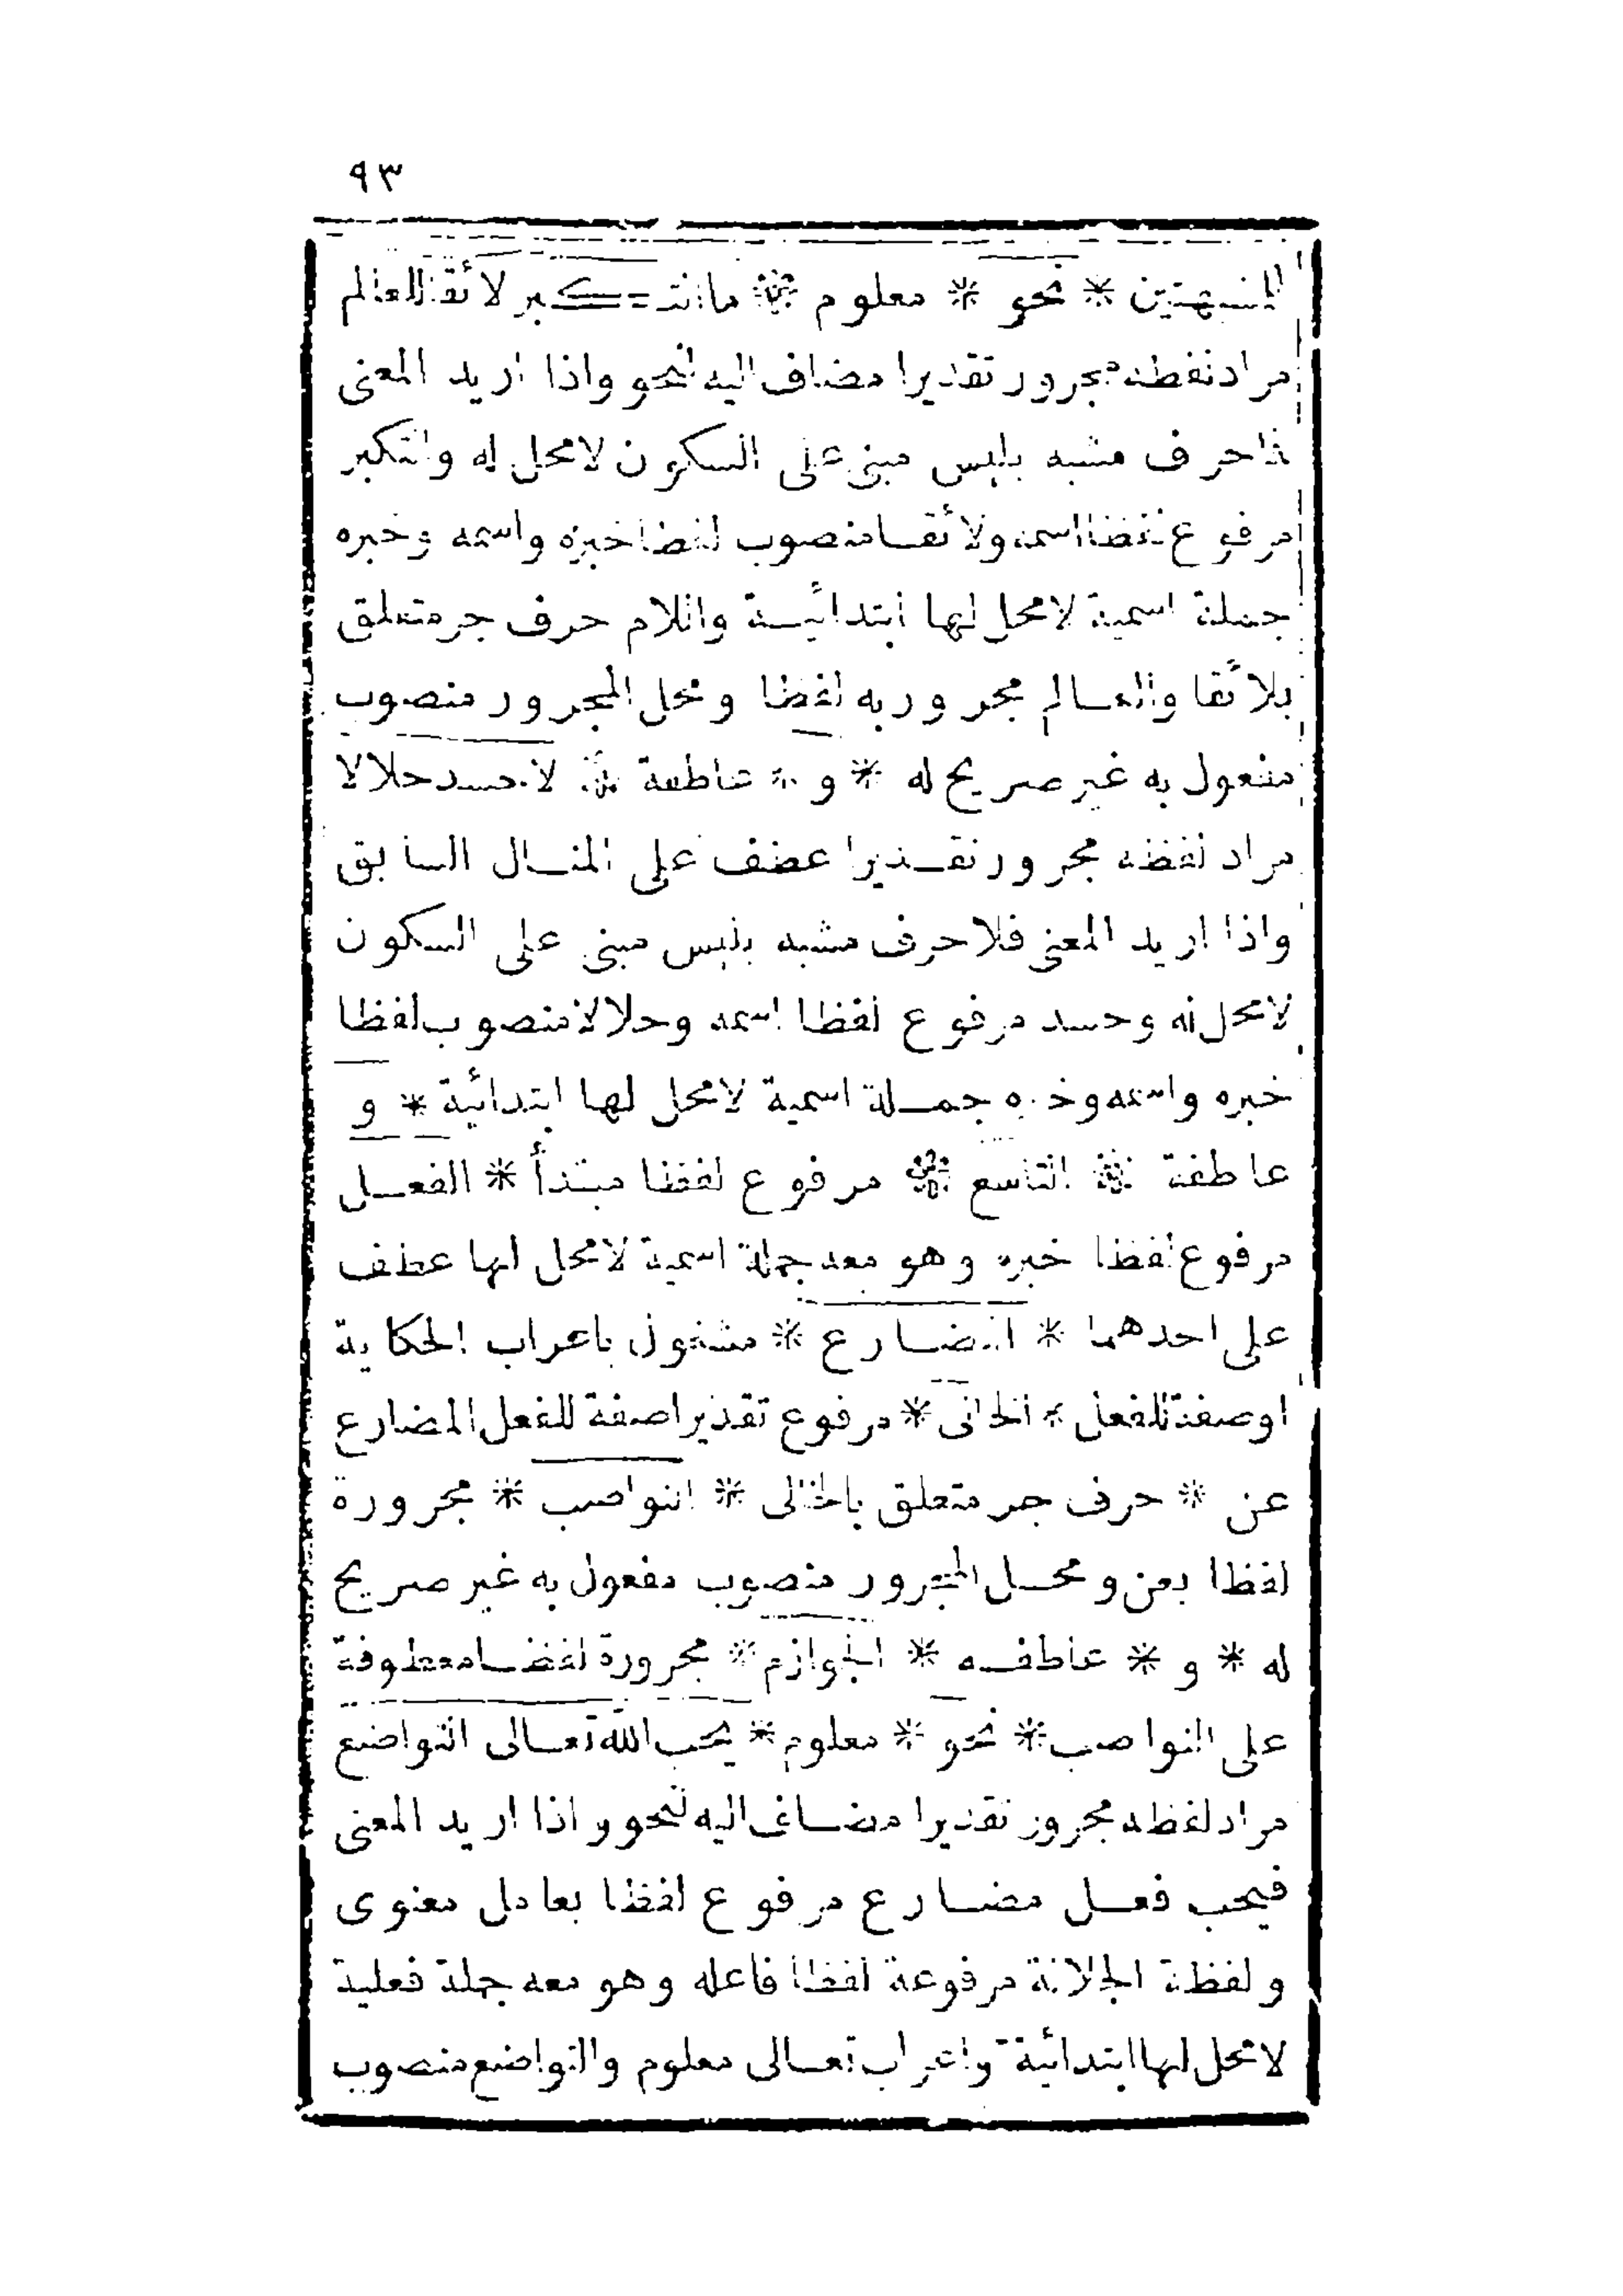 ٩٣
المشبهتين * نحو * معلوم * ما التكبر لائقا للعالم
مراد لفظه مجرور تقديرا مضاف اليه لنحو واذا اريد المعنى
فما حرف مشبه بليس مبنى على السكون لامحل له والتكبر
مرفوع لفظا اسمه ولائقا منصوب لفظا خبره واسمه وخبره
جملة اسمية لامحل لها ابتدائية واللام حرف جر متعلق
بلائقا والعالم مجرور به لفظا ومحل المجرور منصوب
مفعول به غير صريح له * و * عاطفة * لا حسد حلالا
مراد لفظه مجرور تقديرا عطف على المثال السابق
واذا اريد المعنى فلا حرف مشبه بليس مبنى على السكون
لامحل له وحسد مرفوع لفظا اسمه وحلالا منصوب لفظا
خبره واسمه وخبره جملة اسمية لامحل لها ابتدائية * و
عاطفة * التاسع * مرفوع لفظا مبتدأ * الفعل
مرفوع لفظا خبره وهو معه جملة اسمية لامحل لها عطف
على احدهما * المضارع * مشغول باعراب الحكاية
اوصفة للفعل * الخالى * مرفوع تقديرا صفة للفعل المضارع
عن * حرف جر متعلق بالخالى * النواصب * مجرورة
لفظا بعن ومحل المجرور منصوب مفعول به غير صريح
له * و * عاطفه * الجوازم * مجرورة لفظا معطوفة
على النواصب * نحو * معلوم * يحب الله تعالى التواضع
مراد لفظه مجرور تقديرا مضاف اليه لنحو واذا اريد المعنى
فيحب فعل مضارع مرفوع لفظا بعامل معنوى
ولفظة الجلالة مرفوعة لفظا فاعله وهو معه جملة فعلية
لامحل لها ابتدائية واعراب تعالى معلوم والتواضع منصوب